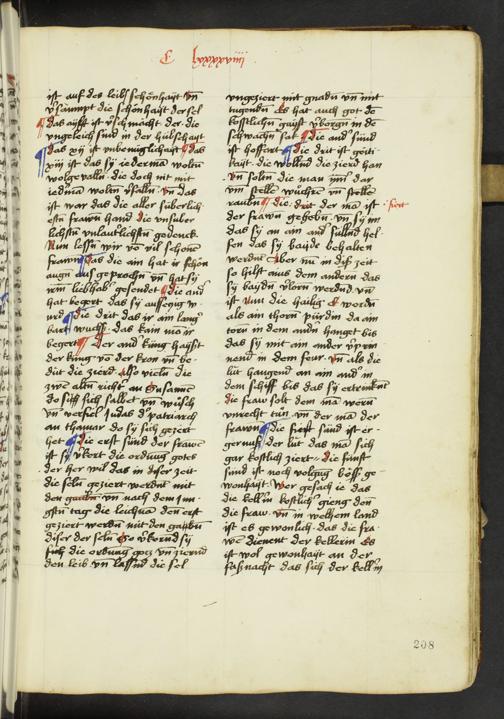 ist auf des leibs schönhayt vn̄
v̓sawmpt die schönhayt der sel
das aylft ist v̓schmächt der die
vngleich sind in der hübschayt
das xij ist vnbeweglichayt das
xiij ist das sy iederma woltn̄
wolgevalln̄ die doch nit mit
iedn̄ma woltn̄ v̓falln̄ vn̄ das
ist war das die aller süberlich
estn̄ frawn̄ hand die vnsuber
lichstn̄
Nun lessn̄ wir vo vil schonn̄
frawn̄ das die ain hat ir schön
augn̄ aus geprochn̄ vn̄ hat sy
irm̄ liebhab' gesendet die and'
hat begert das sy aussetzig w
urd die drit das ir ain lang'
bart wuchss das kain ma ir
begert der and' king hayst
der king vo der kron vn̄ be
düt die zierd also vieln̄ die
zwen altn̄ richt' an susann̄
do si sich salbet vn̄ wüsch
vn̄ versel Judas d' patriarch
an thamar do sy sich geziert
het die erst sünd der frawn̄
ist sy v̓kert die ordnüg gotes
der her wil das in diser zeit
die seln̄ geziert werdn̄t mit
den gnadn̄ vn̄ nach dem jun
gstn̄ tag die leichna den erst
geziert werdn̄ mit den gaubn̄
diser der seln̄ So v̓kernd sy
sich die ordnūg gotz vn̄ ziernd
den leib vn̄ lassn̄d die sel
vngeziert mit gnadn̄ vn̄ mit
tugendn̄ Es hat auch got dē
kostlichn̄ gayst v̓borgn̄ in dē
schwachn̄ sack die and' sünd
ist hoffert die drit ist geiti
kayt die wolln̄d die zierd han
vn̄ soltn̄ die man ym̄ dar
vm̄ stelln̄ wüchrn̄ vn̄ steln̄
raubn̄ die drit der ma ist
fiert
der frawn̄ gehebn̄ vn̄ sy im
das sy an ain and' sülln̄d hel
fen das sy bayde behalten
werdn̄ Aber nu in diser zeit
so hilft ains dem andern das
sy baydn̄ v̓lorn werdn̄d vn̄
ist vm̄ die hailig E wordn̄
als ain thorn pürdin da ain
torn in dem andn̄ hanget bis
das sy mit ain ander v̓prin
nend in dem feur vn̄ als die
lüt haugend an ain and' in
dem schiff bis das sy ertrinkēt
die fraw solt dem ma wern̄
vnrecht tun vn̄ der ma der
frawn̄ die fierst sünd ist er
gernuss der lüt das ma sich
gar kostlich ziert die finft
sünd ist noch volgūg böss' ge
wonhayt Wer gesach ie das
die kelln̄in kostlich' gieng den
die fraw vn̄ in welhem land
ist es gewonlich das die fra
wen dienent der kellerin Es
ist wol gewonhayt an der
fassnacht das sich der kelln̄in
208